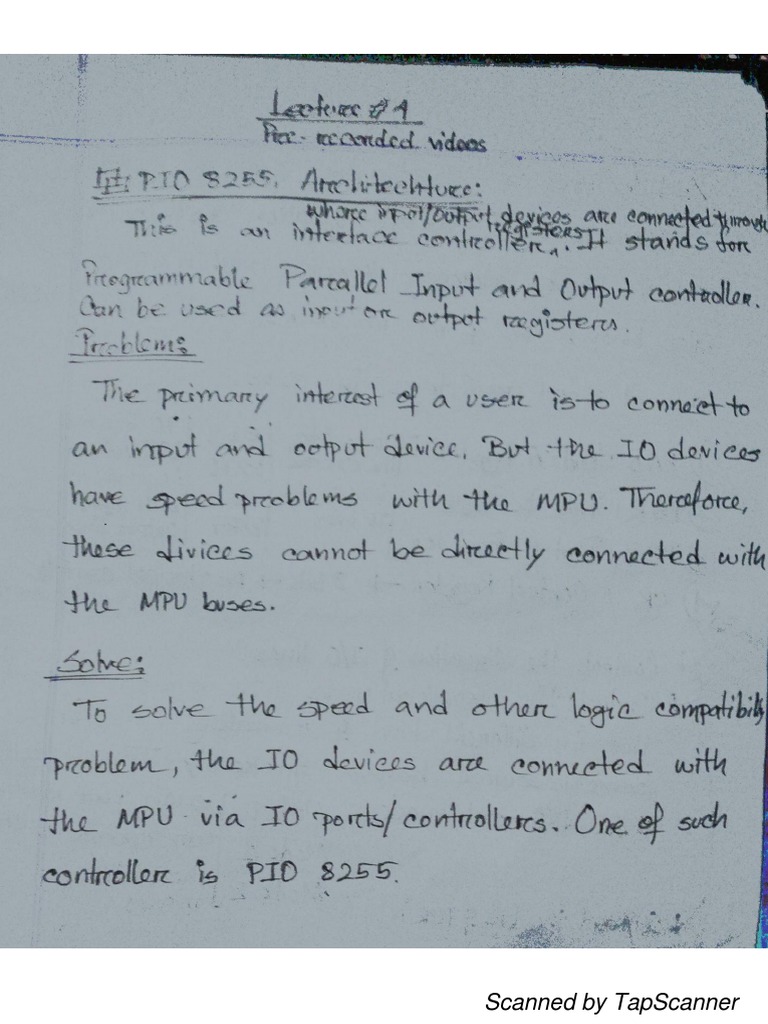 Lecture # 1
Pre-recorded videos
PIO 8255 Architechture:
where input/output devices are connected through
registers
This is an interface controller. It stands for
Programmable Parallel Input and Output controller.
Can be used as input or output registers.
Problem:
The primary interest of a user is to connect to
an input and output device. But the IO devices
have speed problems with the MPU. Therefore,
these divices cannot be directly connected with
the MPU buses.
Solve:
To solve the speed and other logic compatibility
problem, the IO devices are connected with
the MPU via IO ports/controllers. One of such
controller is PIO 8255.
Scanned by TapScanner